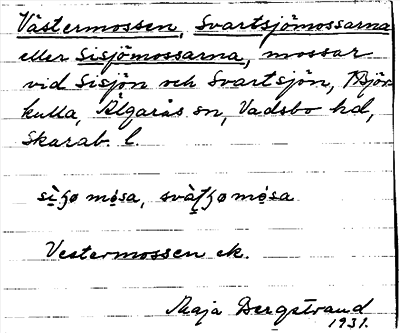 Västermossen, Svartsjömossarna
eller Sisjömossarna, mossar
vid Sisjön och Svartsjön, Björ-
kulla, Älgarås sn, Vadsbo hd,
Skarab. l.
Vestermossen ek.
Maja Bergstrand
1931.